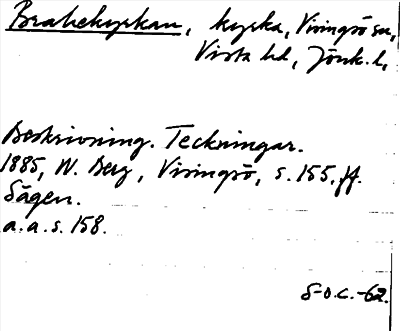 Brahekyrkan, kyrka, Visingsö sn,
Vista hd, Jönk. l,
Beskrivning. Teckningar.
1885, W. Berg, Visingsö, s. 155, ff.
Sägen.
a. a. s. 158.
S-O.C. -62.